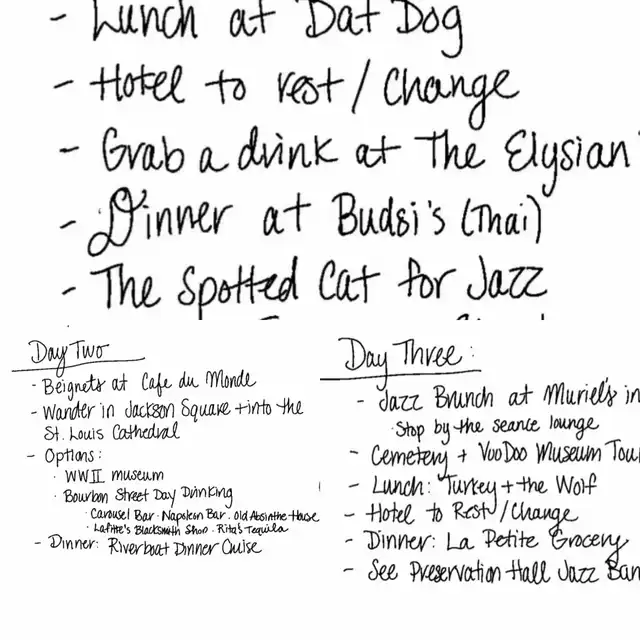 - Lunch at Dat Dog
- Hotel to rest / Change
- Grab a drink at The Elysian
- Dinner at Budsi's (Thai)
- The Spotted Cat for Jazz
Day Two
- Beignets at Cafe du Monde
- Wander in Jackson Square + into the
St. Louis Cathedral
- Options:
· WWII museum
· Bourbon Street Day Drinking
· Carousel Bar · Napoleon Bar · Old Absinthe House
· Lafitte's Blacksmith Shop · Rita's Tequila
- Dinner: Riverboat Dinner Cruise
Day Three:
- Jazz Brunch at Muriel's in
· Stop by the seance lounge
- Cemetery + VooDoo Museum Tou
- Lunch: Turkey + the Wolf
- Hotel to Rest / Change
- Dinner: La Petite Grocery
- See Preservation Hall Jazz Ban